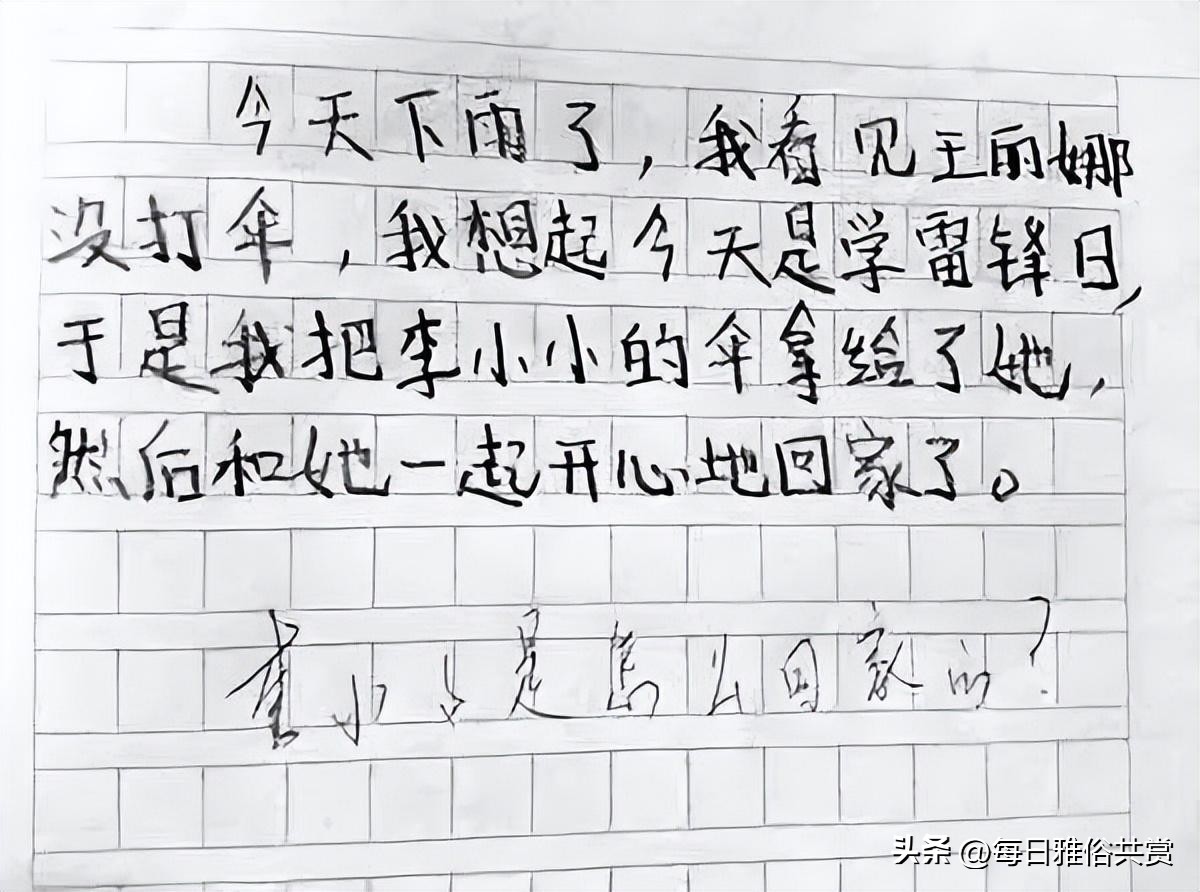 今天下雨了，我看见王丽娜
没打伞，我想起今天是学雷锋日，
于是我把李小小的伞拿给了她，
然后和她一起开心地回家了。
小小是怎么回家的？
头条 @每日雅俗共赏